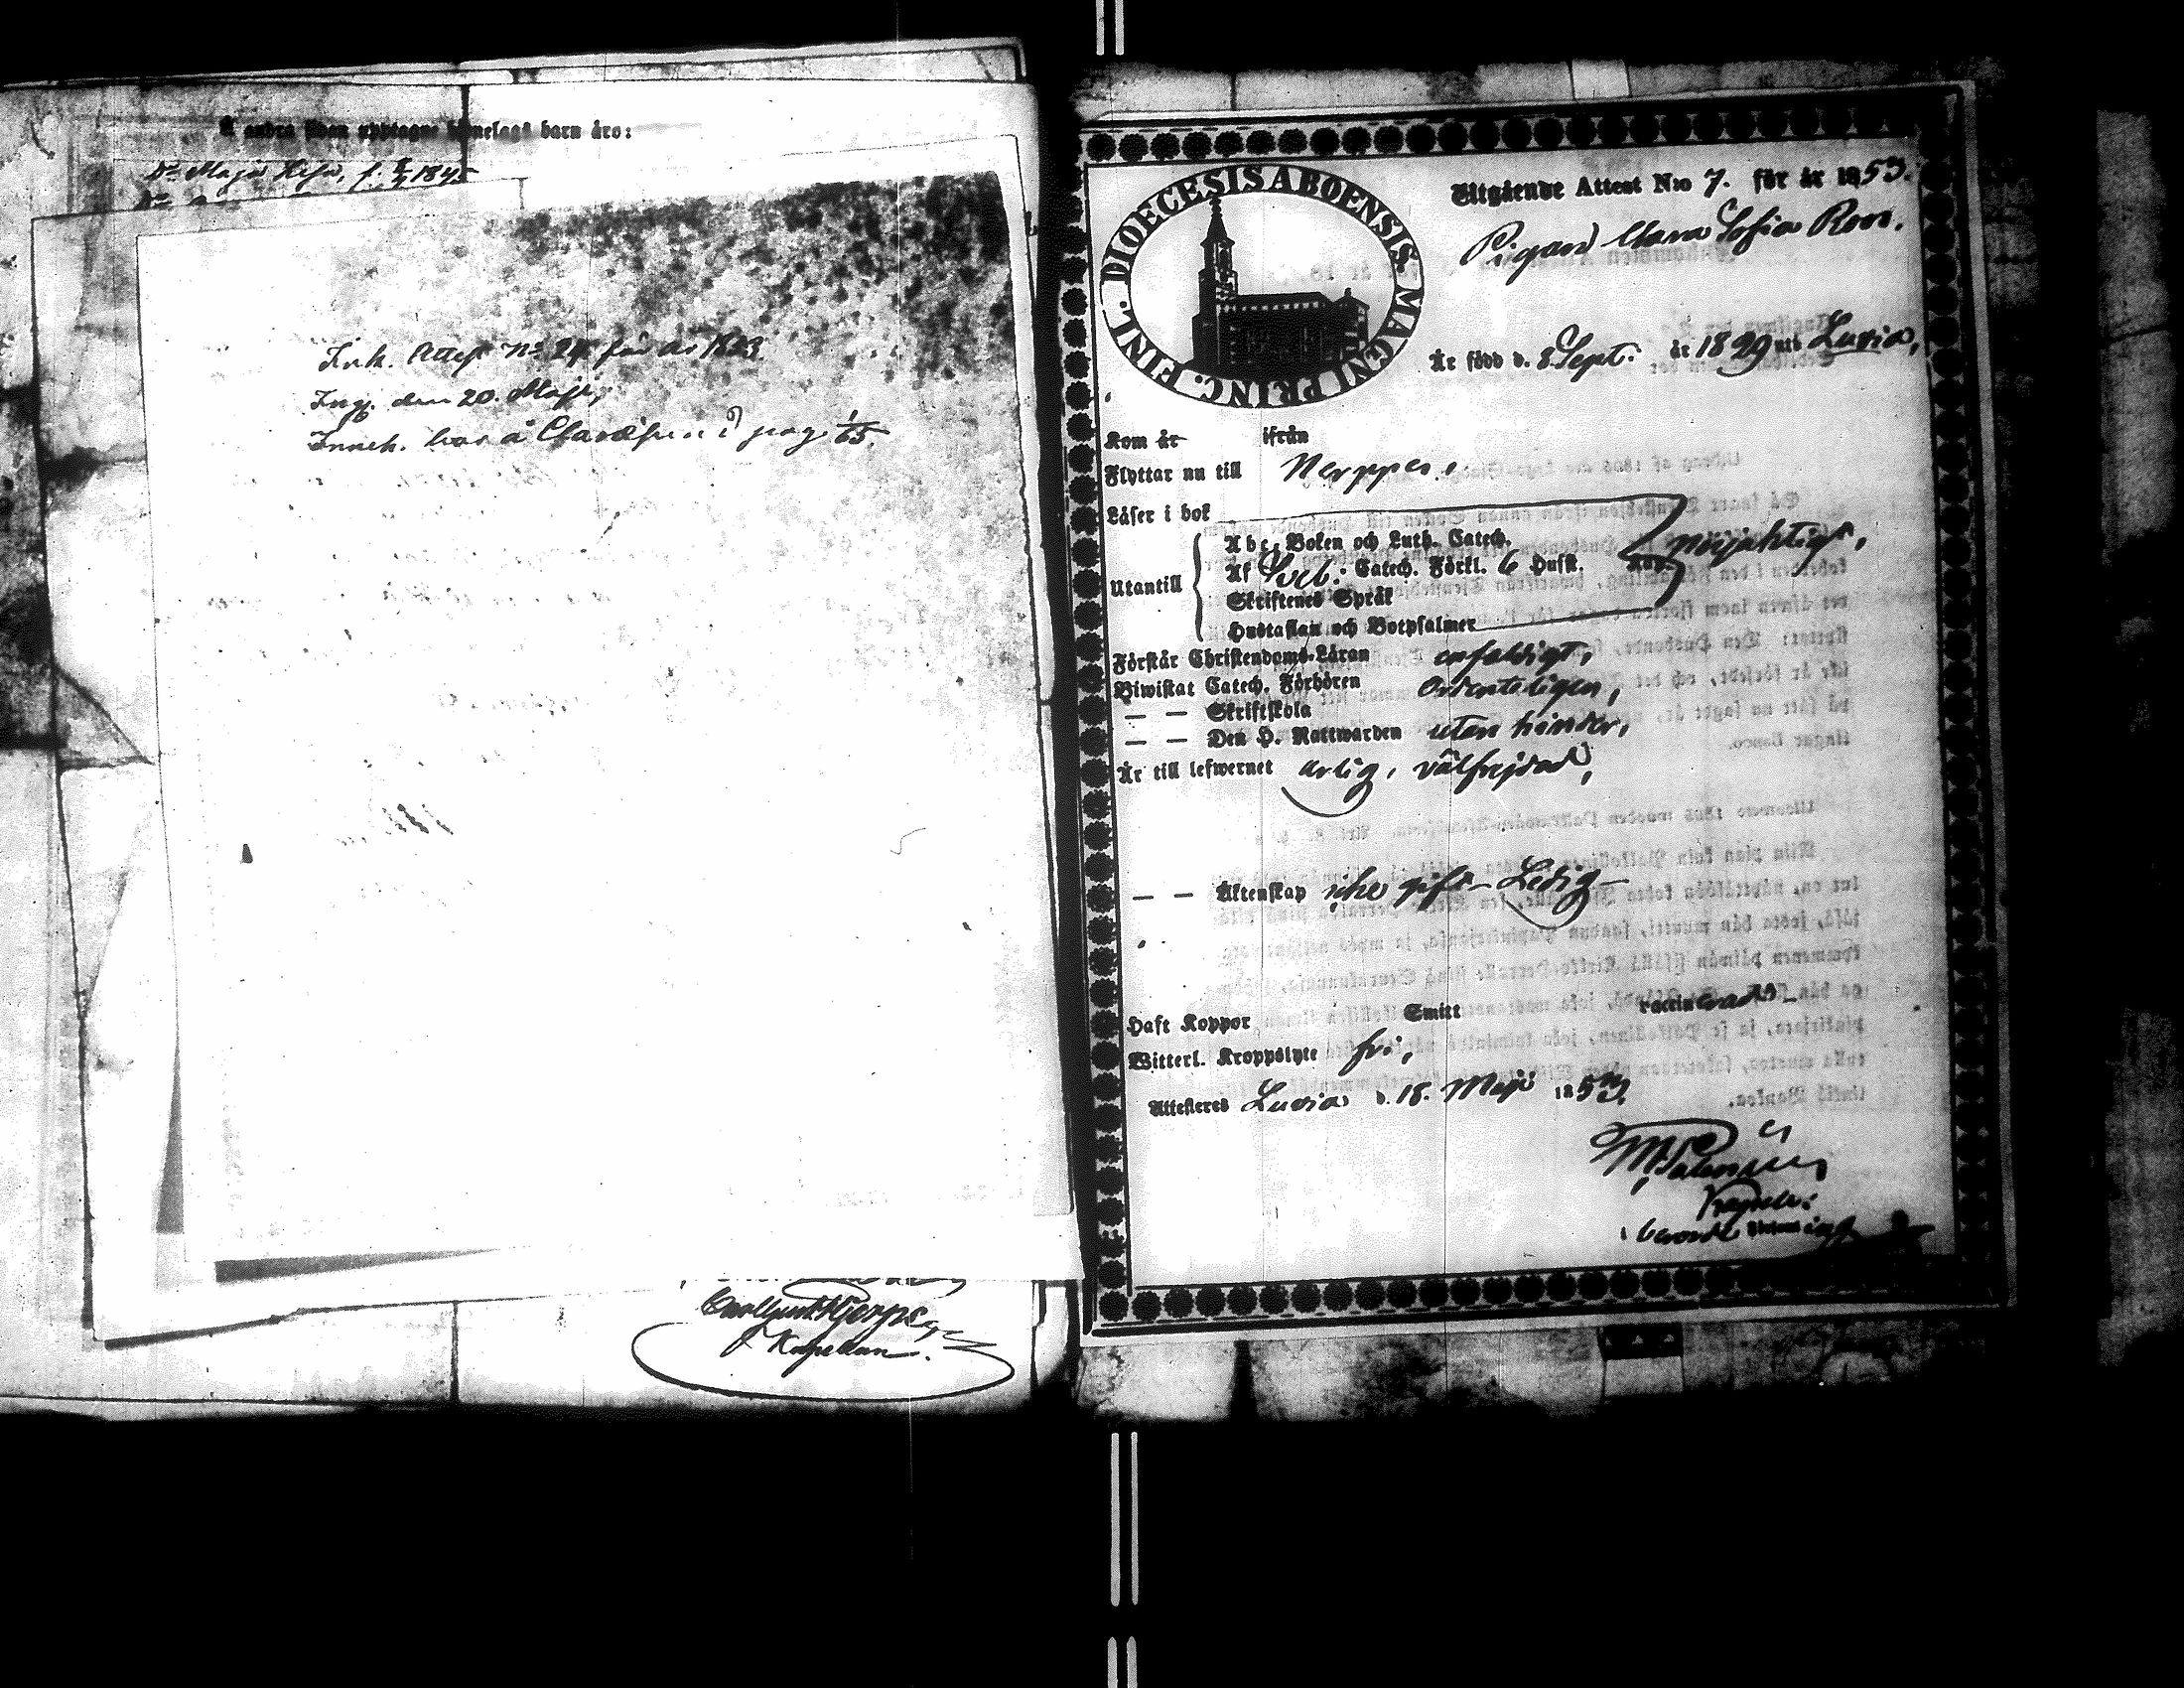 Å andra sidan upptagne hjonelags barn äro:
Dr Maja Lisa, f. 1845
Ink. Attest No 24 för år 1853
Ing. den 20. Maji,
Inneh. har å pag. 1/65.
J. Kapellan.
DIOECESIS ABOENSIS. MAGNI PRINC. FINL.
Utgående Attest N:o 7. för år 1853.
Pigan Clara Sofia Roos.
Är född d. 8 Sept. år 1829 uti Luvia,
Kom år ifrån
Flyttar nu till Nerppes.
Läser i bok
Abc-Boken och Luth. Catech.
Utantill Af Sveb: Catech. Förkl. 6 Hufst. nöjaktigt,
Skriftenes Språk
Hustaflan och Botpsalmer
Förstår Christendoms-Läran enfaldigt,
Biwistat Catech. Förhören ordenteligen,
— — Skriftskola
— — Den H. Nattwarden utan hinder,
Är till lefwernet ärlig, välfrejdad,
— — Äktenskap icke gift – Ledig –
Haft Koppor Smitt Vaccinerad –
Witterl. Kroppslyte fri,
Attesteras Luvia d. 18. Maji 1853.